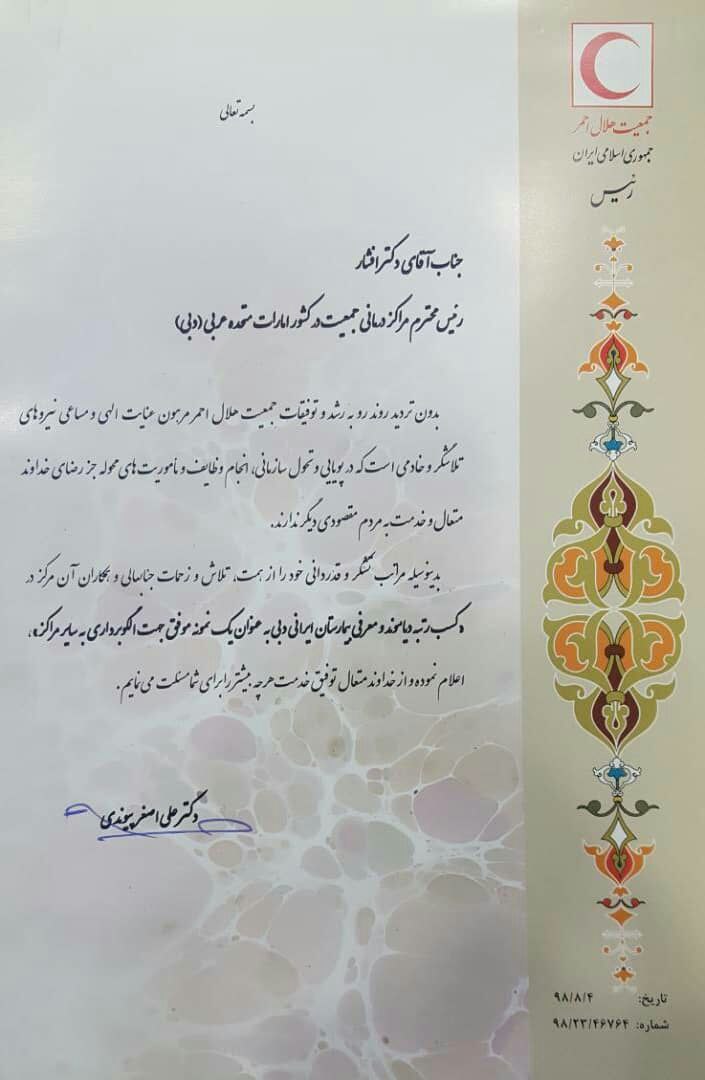 جمعیت هلال احمر
جمهوری اسلامی ایران
رئیس
بسمه تعالی
جناب آقای دکتر افشار
رئیس محترم مراکز درمانی جمعیت در کشور امارات متحده عربی (دبی)
بدون تردید روند رو به رشد و توفیقات جمعیت هلال احمر مرهون عنایت الهی و مساعی نیروهای
تلاشگر و خادمی است که در پویایی و تحول سازمانی، انجام وظایف و مأموریت‌های محوله جز رضای خداوند
متعال و خدمت به مردم مقصودی دیگر ندارند.
بدینوسیله مراتب تشکر و قدردانی خود را از همت، تلاش و زحمات جنابعالی و همکاران آن مرکز در
«کسب رتبه دیاموند و معرفی بیمارستان ایرانی دبی به عنوان یک نمونه موفق جهت الگوبرداری به سایر مراکز»،
اعلام نموده و از خداوند متعال توفیق خدمت هرچه بیشتر را برای شما مسئلت می‌نمایم.
دکتر علی اصغر پیوندی
تاریخ: ۹۸/۸/۴
شماره: ۹۸/۲۳/۴۶۷۶۴